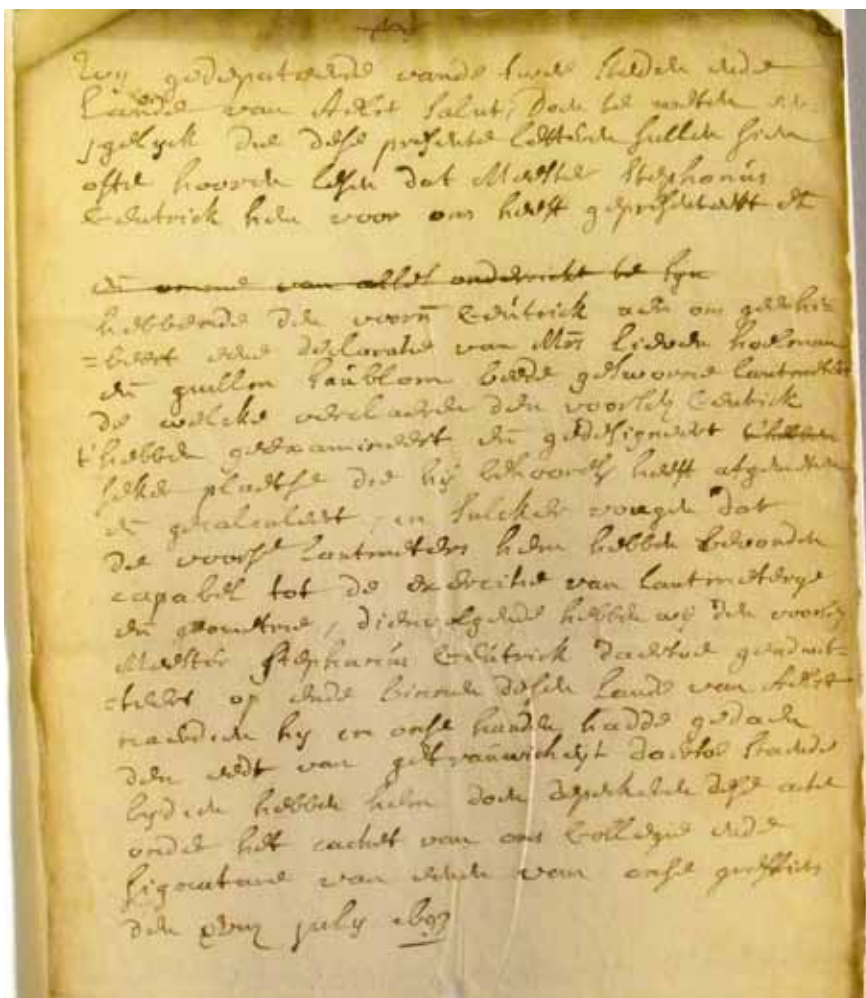 Wij gedeputeerde vande twee steden ende
Lande van Aelst Salut, doen te weten een
jgelyck die dese presente letteren sullen sien
ofte hooren lesen dat Meester Stephanus
Ceutrick hem voor ons heeft gepresenteert en
en omme van alles onderricht te syn
hebbende den voorn Ceutrick aen ons geexhi=
=beert eene declaratie van Mrs Lieven hoelman
en guillm haublom beede geswoorne lantmeters
de welcke verclaeren den voorsn Ceutrick
t'hebben geexamineert en gedesigneert t'hebben
seker plaetse die hy behoorelk heeft afgemeten
en gecalculeert, in sulcker voegen dat
de voorse Lantmeters hem hebben bevonden
capabel tot de exercitie van lantmeterye
en geometrie, dienvolgende hebben wij den voorsn
Meester Stephanus Ceutrick daertoe geadmit=
=teert op ende binnen desen Lande van Aelst
naerdien hy in onse handen hadde gedaen
den eedt van getrauwicheyt daertoe staende
bydien hebben hem doen depescheren dese acte
onder het cachet van ons Collegie ende
signature van eenen van onse greffiers
den july